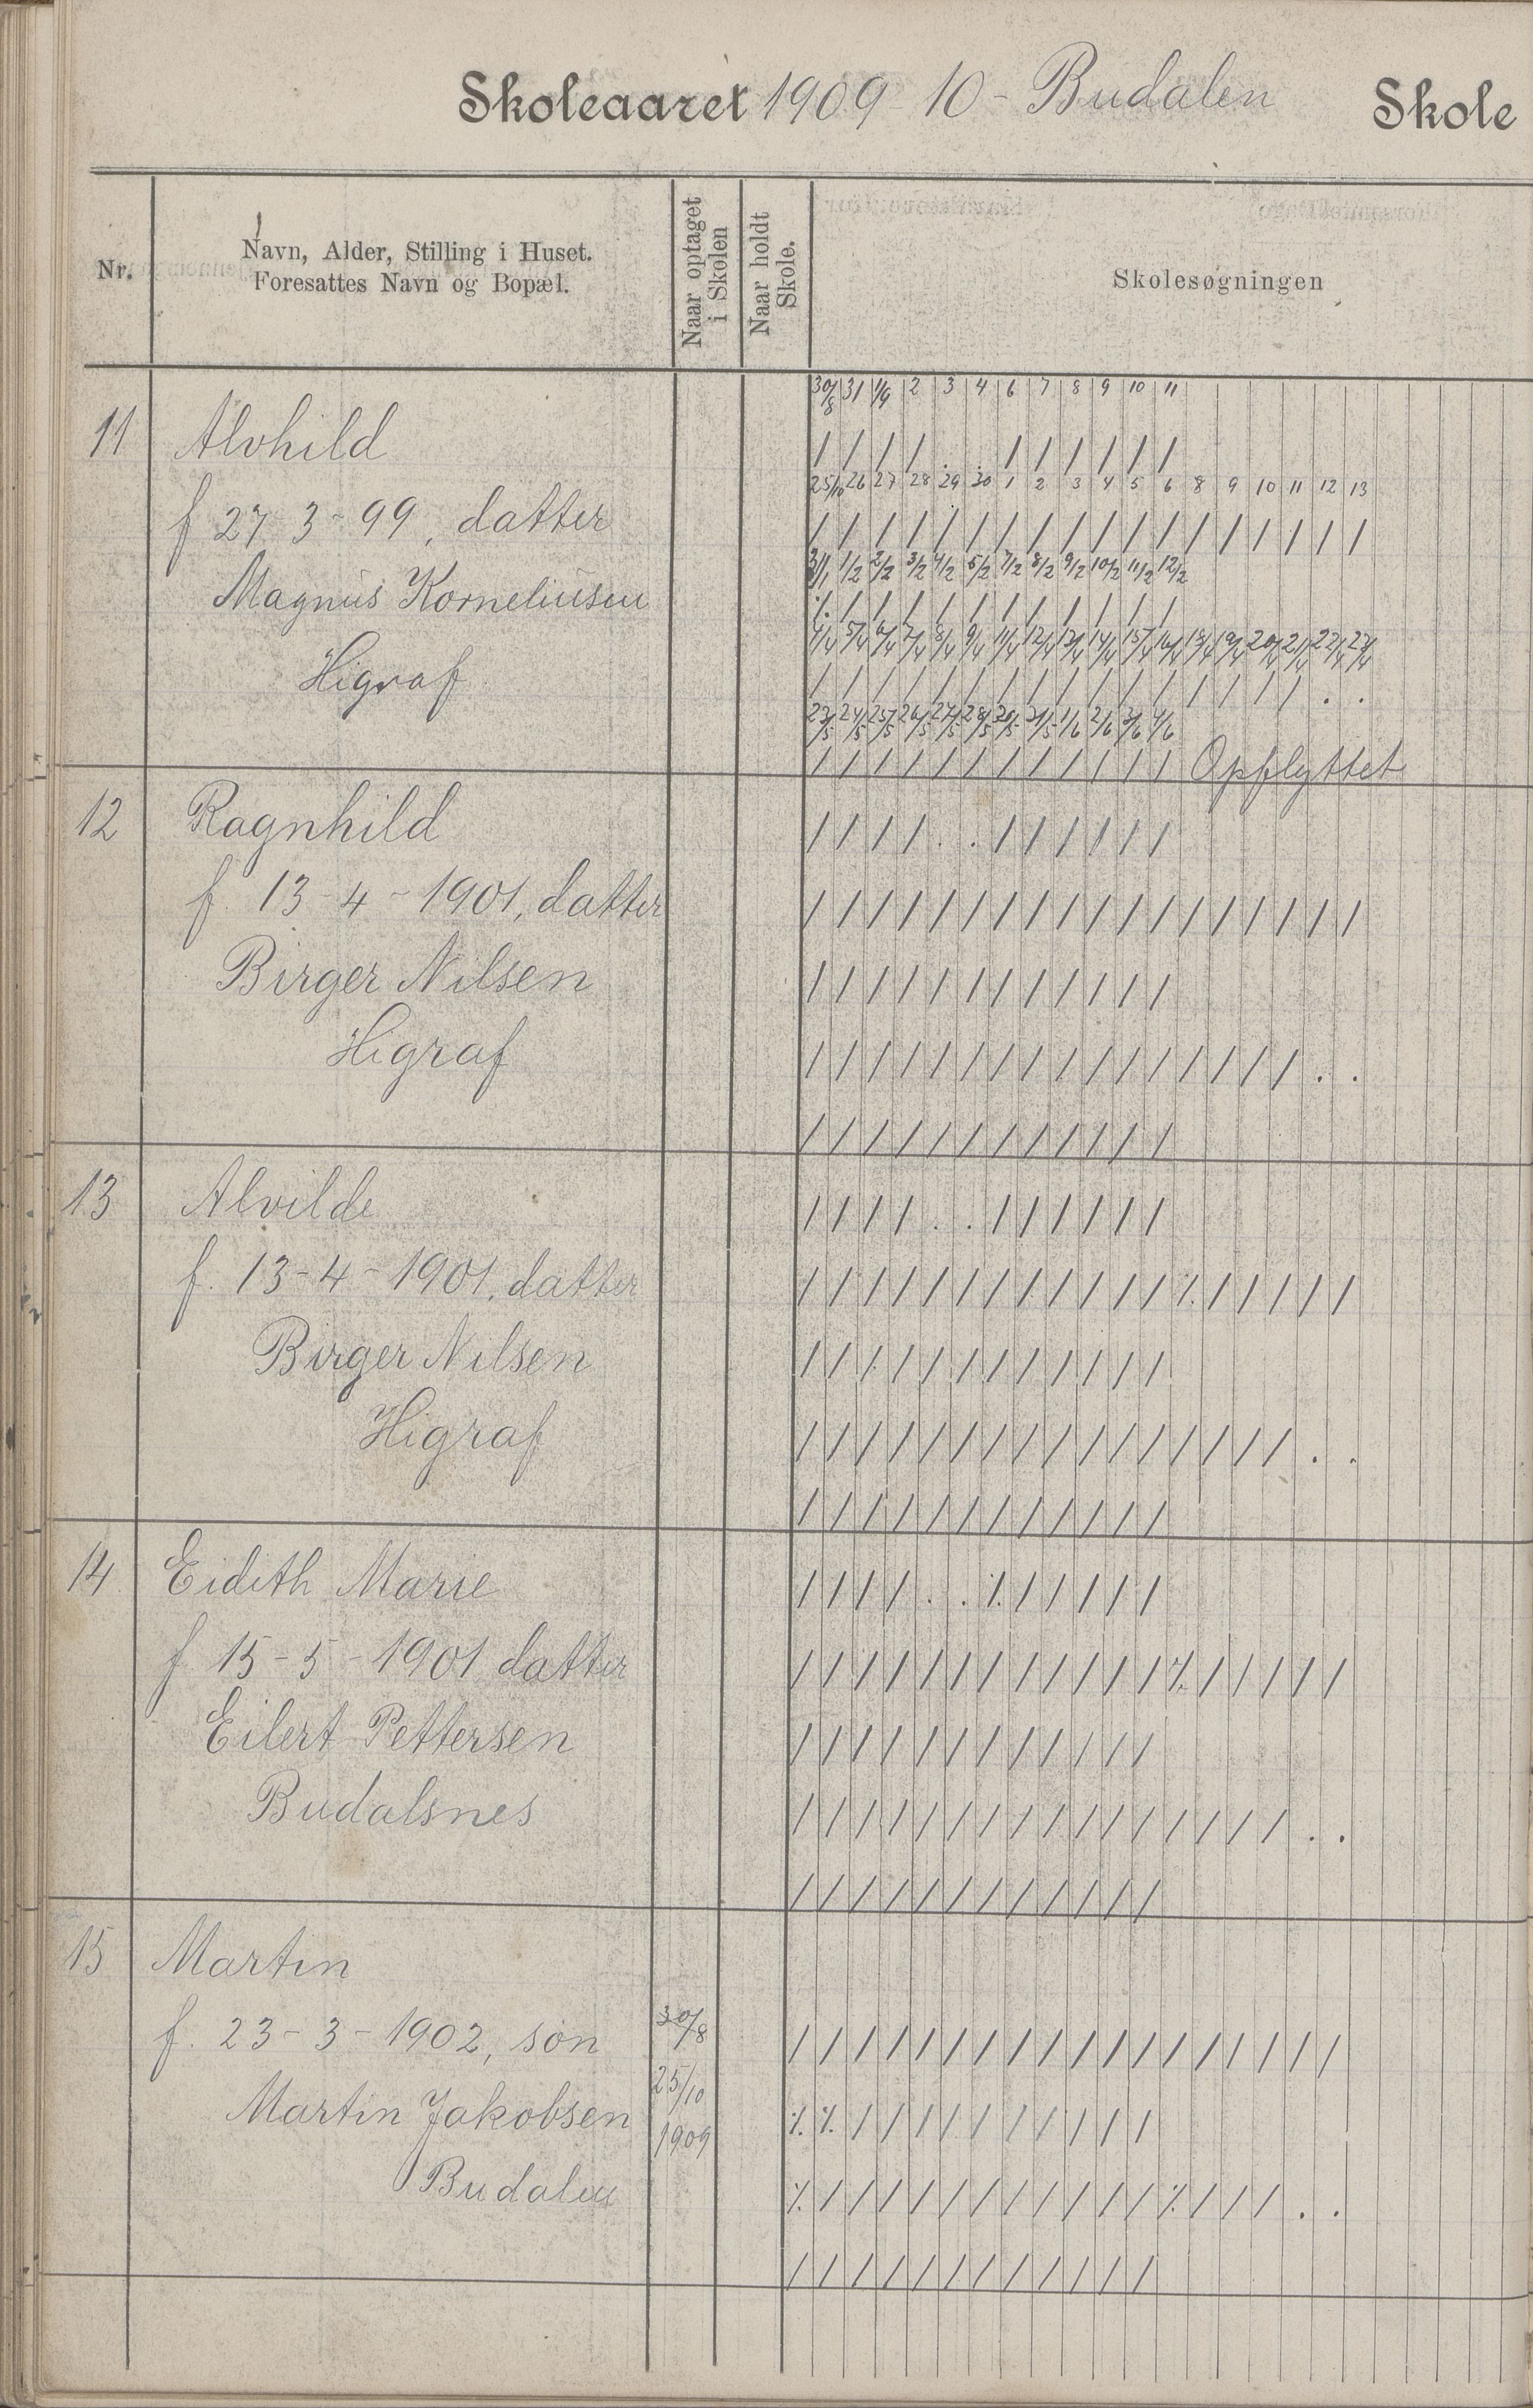 Skoleaaret 1909-10 - Budalen Skole
Nr.
Navn, Alder, Stilling i Huset.
Foresattes Navn og Bopæl.
Naar optaget
i Skolen
Naar holdt
Skole.
Skolesøgningen
30/8 31 1/9 2 3 4 6 7 8 9 10 11
11 Alvhild / / / / . . / / / / / /
25/10 26 27 28 29 30 1 2 3 4 5 6 8 9 10 11 12 13
f 27-3-99, datter / / / / / / / / / / / / / / / / / /
31/1 1/2 2/2 3/2 4/2 5/2 7/2 8/2 9/2 10/2 11/2 12/2
Magnus Korneliusen ·/. / / / / / / / / / / /
4/4 5/4 6/4 7/4 8/4 9/4 11/4 12/4 13/4 14/4 15/4 16/4 18/4 19/4 20/4 21/4 22/4 23/4
Higraf / / / / / / / / / / / / / / / / . .
23/5 24/5 25/5 26/5 27/5 28/5 30/5 31/5 1/6 2/6 3/6 4/6
/ / / / / / / / / / / / Opflyttet
12 Ragnhild / / / / . . / / / / / /
f. 13-4-1901, datter / / / / / / / / / / / / / / / / / /
Birger Nilsen / / / / / / / / / / / /
Higraf / / / / / / / / / / / / / / / / . .
/ / / / / / / / / / / /
13 Alvilde / / / / . . / / / / / /
f. 13-4-1901, datter / / / / / / / / / / / / ·/. / / / / /
Birger Nilsen / / / / / / / / / / / /
Higraf / / / / / / / / / / / / / / / / . .
/ / / / / / / / / / / /
14 Eidith Marie / / / / . . ·/. / / / / /
f 15-5-1901 datter / / / / / / / / / / / / ·/. / / / / /
Eilert Pettersen / / / / / / / / / / / /
Budalsnes / / / / / / / / / / / / / / / / . .
/ / / / / / / / / / / /
15 Martin
f. 23-3-1902, søn 30/8 / / / / / / / / / / / / / / / / / /
25/10
Martin Jakobsen 1909 ·/. ·/. / / / / / / / / / /
Budalen ·/. / / / / / / / / / / / ·/. / / / . .
/ / / / / / / / / / / /